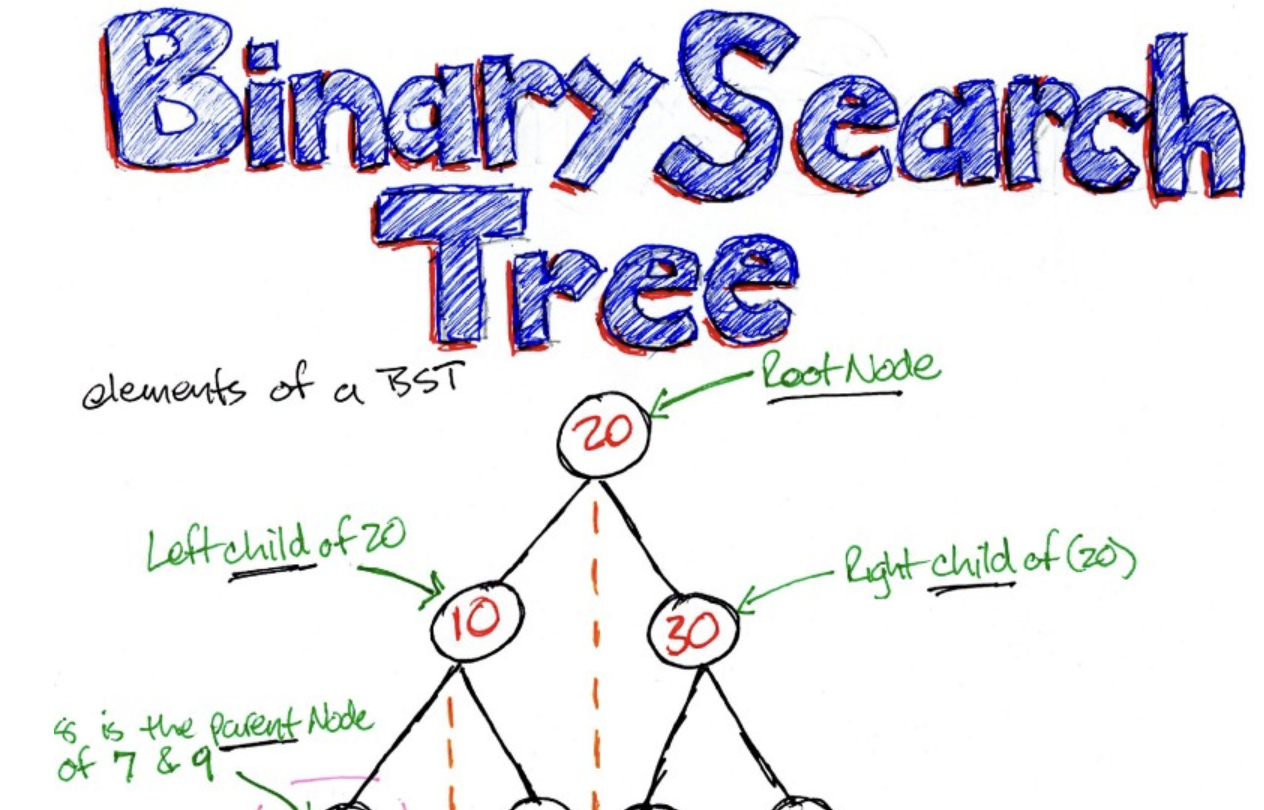 Binary Search
Tree
elements of a BST
Root Node
20
Left child of 20
Right child of (20)
10
30
8 is the parent Node
of 7 & 9